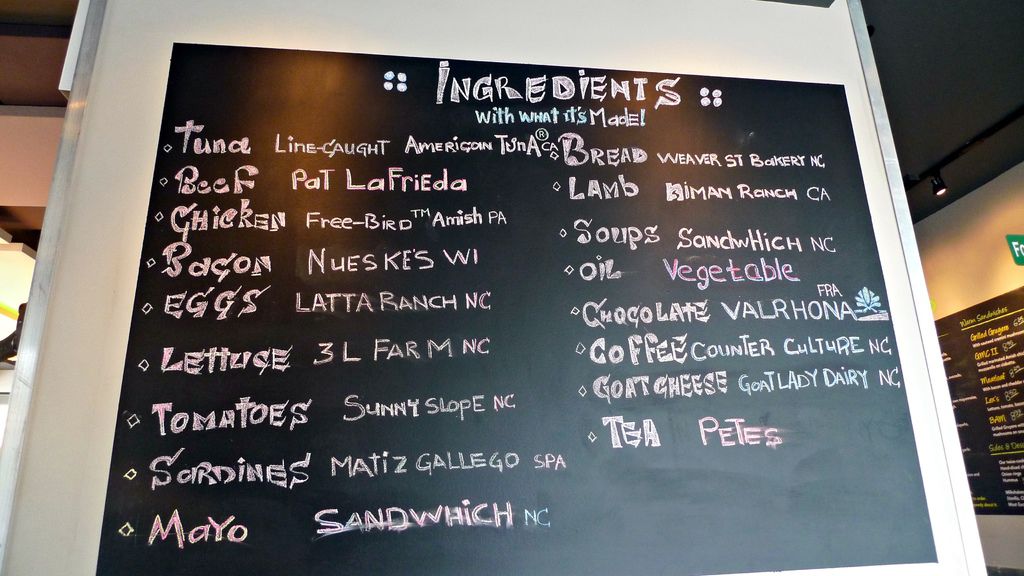 INGREDIENTS
with WHAT it's Made!
Tuna Line-Caught American Tuna® CA
Beef Pat LaFrieda
Chicken Free-Bird™ Amish PA
Bacon Nueske's WI
Eggs Latta Ranch NC
Lettuce 3 L Farm NC
Tomatoes Sunny Slope NC
Sardines Matiz Gallego SPA
Mayo Sandwhich NC
Bread Weaver St Bakery NC
Lamb Niman Ranch CA
Soups Sandwhich NC
Oil Vegetable
Chocolate Valrhona FRA
Coffee Counter Culture NC
Goat Cheese Goat Lady Dairy NC
Tea Petes
Warm Sandwiches
Grilled Gruyere
GMC II
Meatloaf
Leo's
BAM
Sides &